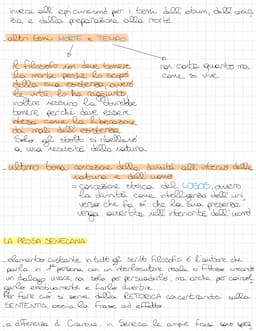 invece all' epicureismo per i temi dell' otium, dell' amici
zia e della preparazione alla morte
altri temi MORTE e TEMPO
il filosofo non deve temere
la morte perché lo scopo
della sua esistenza, ovvero
la virtù, lo ha raggiunto
inoltre nessuno la dovrebbe
temere perché deve essere
intesa come la liberazione
dai mali dell' esistenza
Solo gli stolti si ribellano
a una necessità della natura
non conta quanto ma
come si vive
ultimo tema concezione della divinità all' interno della
natura e dell' uomo
= concezione stoica del LOGOS, ovvero
la divinità come intelligenza dell' uni
verso che fa sì che la sua presenza
venga avvertita nell' interiorità dell' uomo
LA PROSA SENECANA
elemento costante in tutti gli scritti filosofici è l' autore che
parla in 1ª persona con un interlocutore reale o fittizio creando
un dialogo vivace, non solo per persuaderlo, ma anche per coinvol
gerlo emotivamente e farlo divertire
Per fare ciò si serve della RETORICA concentrandosi sulla
SENTENTIA, ossia la frase ad effetto
a differenza di Cicerone, in Seneca le ampie frasi sono spez